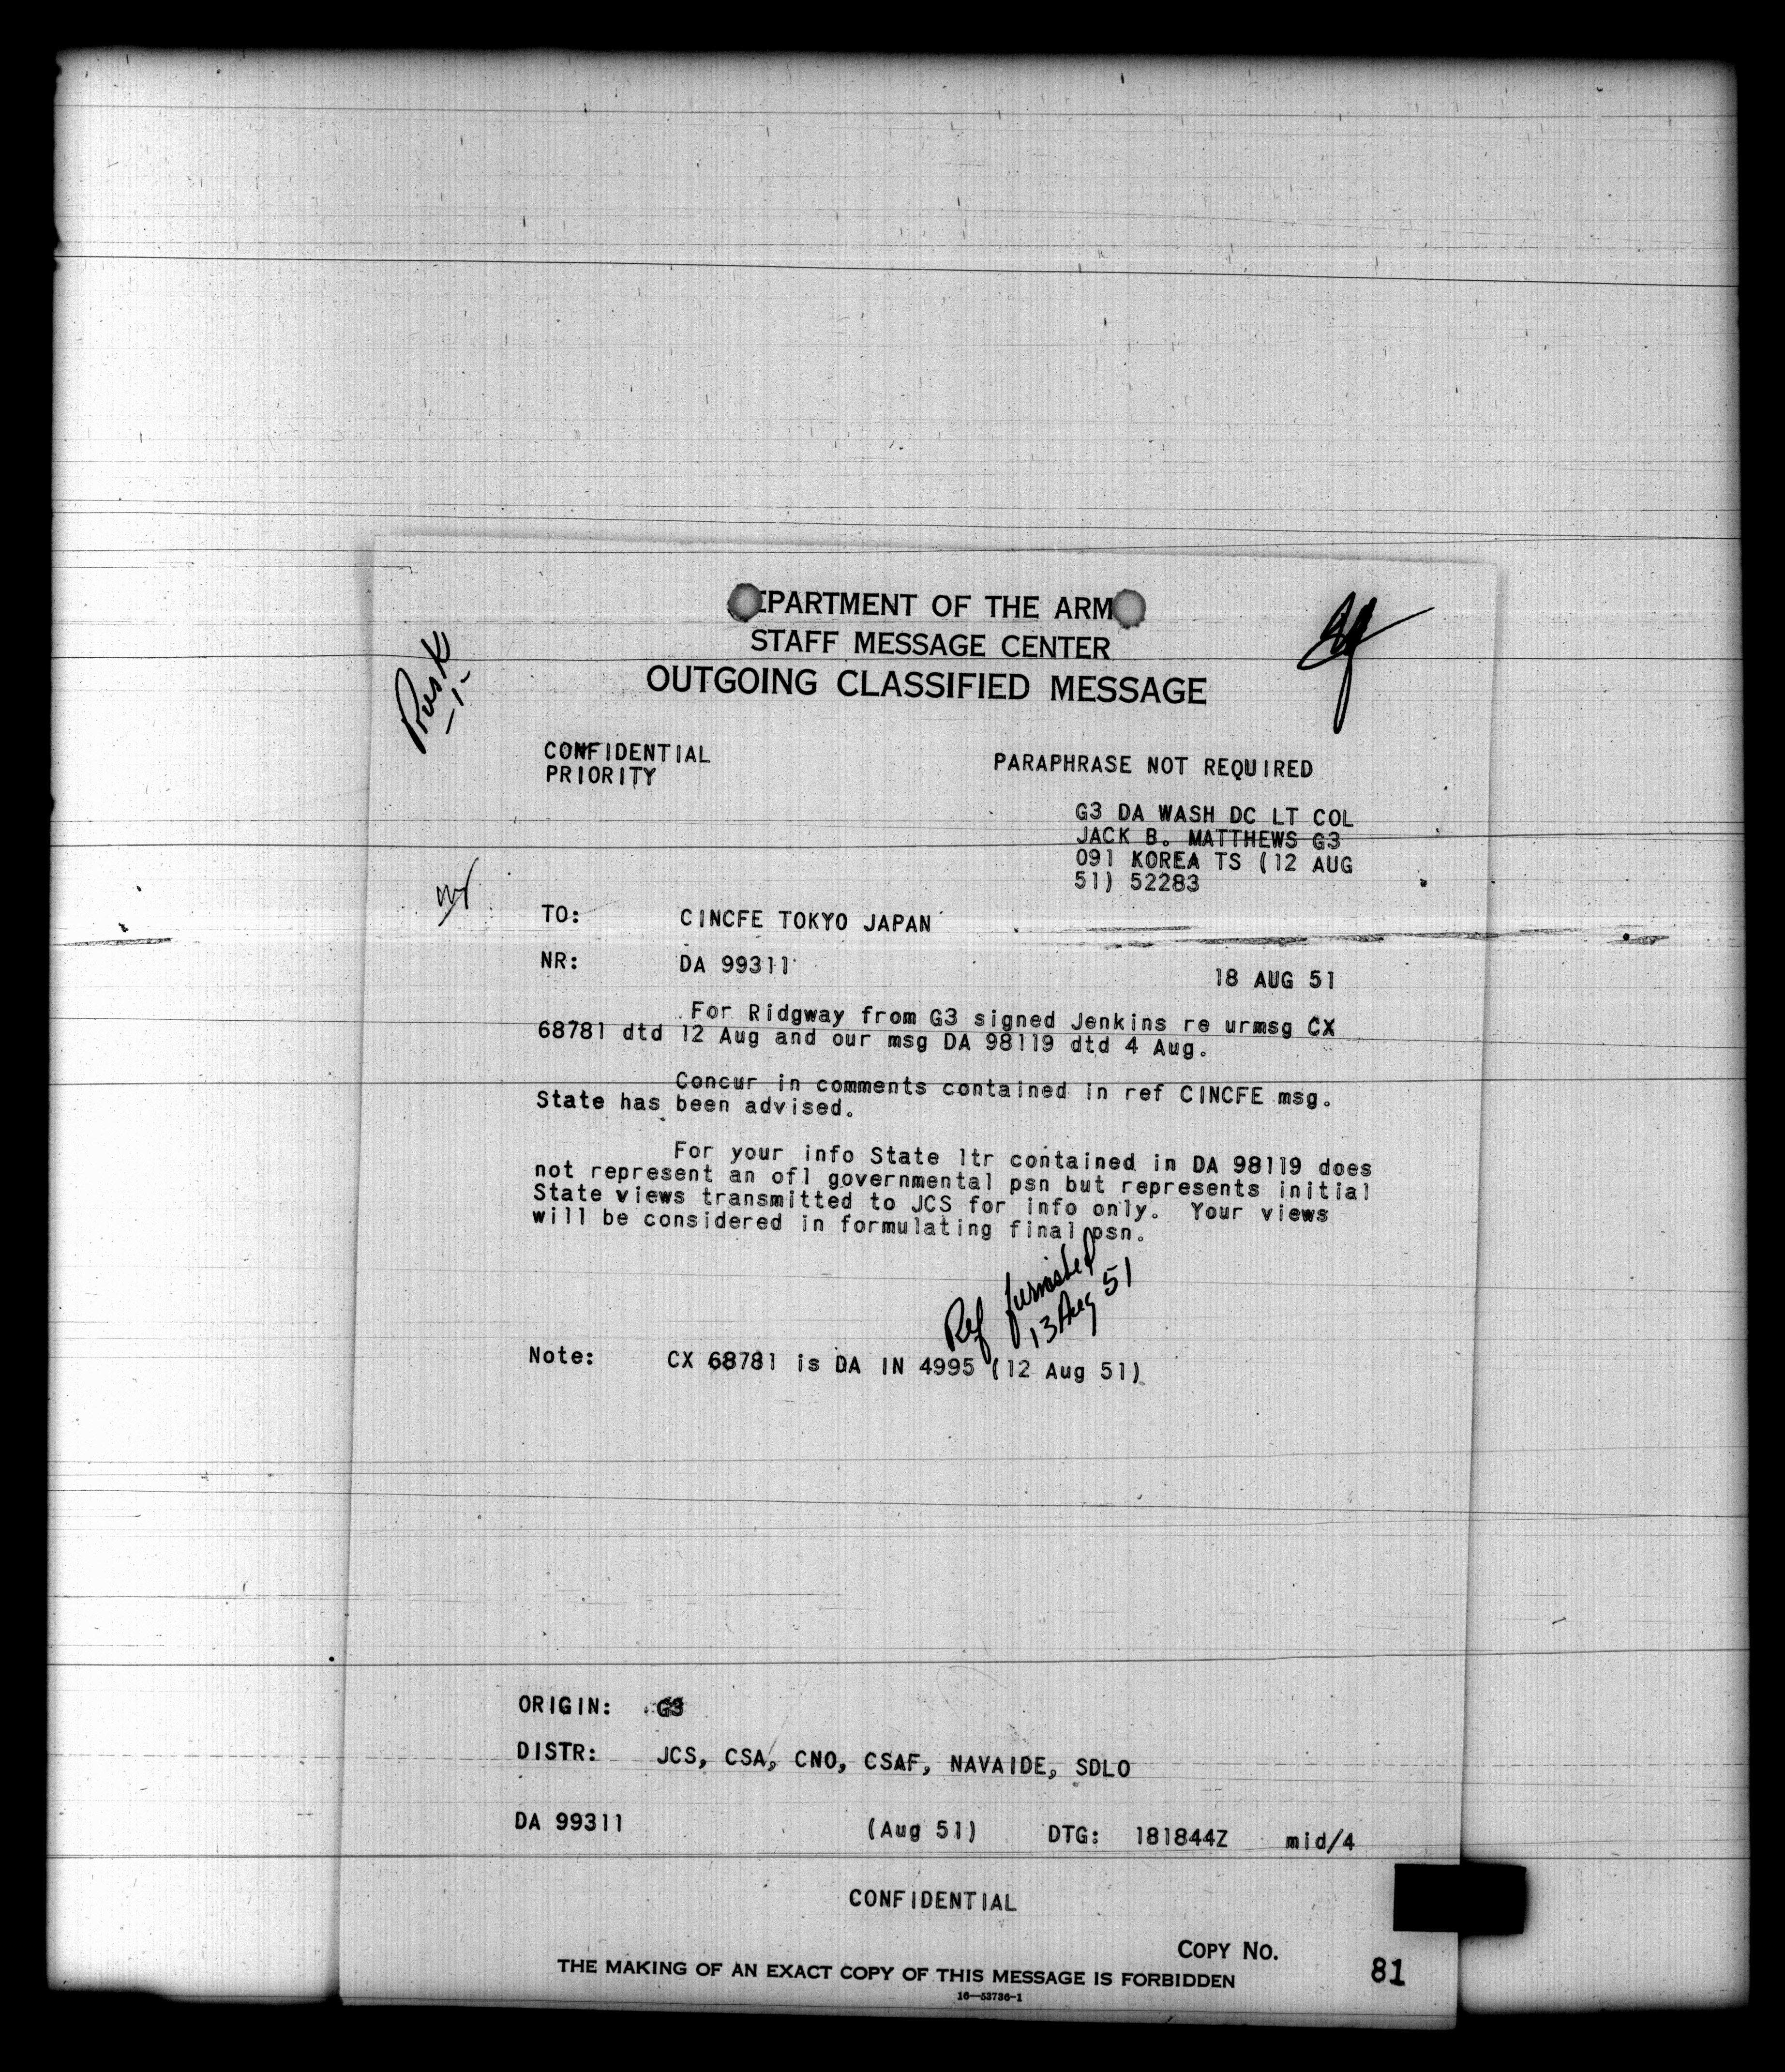 DEPARTMENT OF THE ARMY
STAFF MESSAGE CENTER
OUTGOING CLASSIFIED MESSAGE
Rusk
-1-
CONFIDENTIAL
PRIORITY
PARAPHRASE NOT REQUIRED
G3 DA WASH DC LT COL
JACK B. MATTHEWS G3
091 KOREA TS (12 AUG
51) 52283
TO: CINCFE TOKYO JAPAN
NR: DA 99311
18 AUG 51
For Ridgway from G3 signed Jenkins re urmsg CX
68781 dtd 12 Aug and our msg DA 98119 dtd 4 Aug.
Concur in comments contained in ref CINCFE msg.
State has been advised.
For your info State ltr contained in DA 98119 does
not represent an ofl governmental psn but represents initial
State views transmitted to JCS for info only. Your views
will be considered in formulating final psn.
Ref furnished
13 Aug 51
Note: CX 68781 is DA IN 4995 (12 Aug 51)
ORIGIN: G3
DISTR: JCS, CSA, CNO, CSAF, NAVAIDE, SDLO
DA 99311 (Aug 51) DTG: 181844Z mid/4
CONFIDENTIAL
COPY NO.
81
THE MAKING OF AN EXACT COPY OF THIS MESSAGE IS FORBIDDEN
16—53736-1